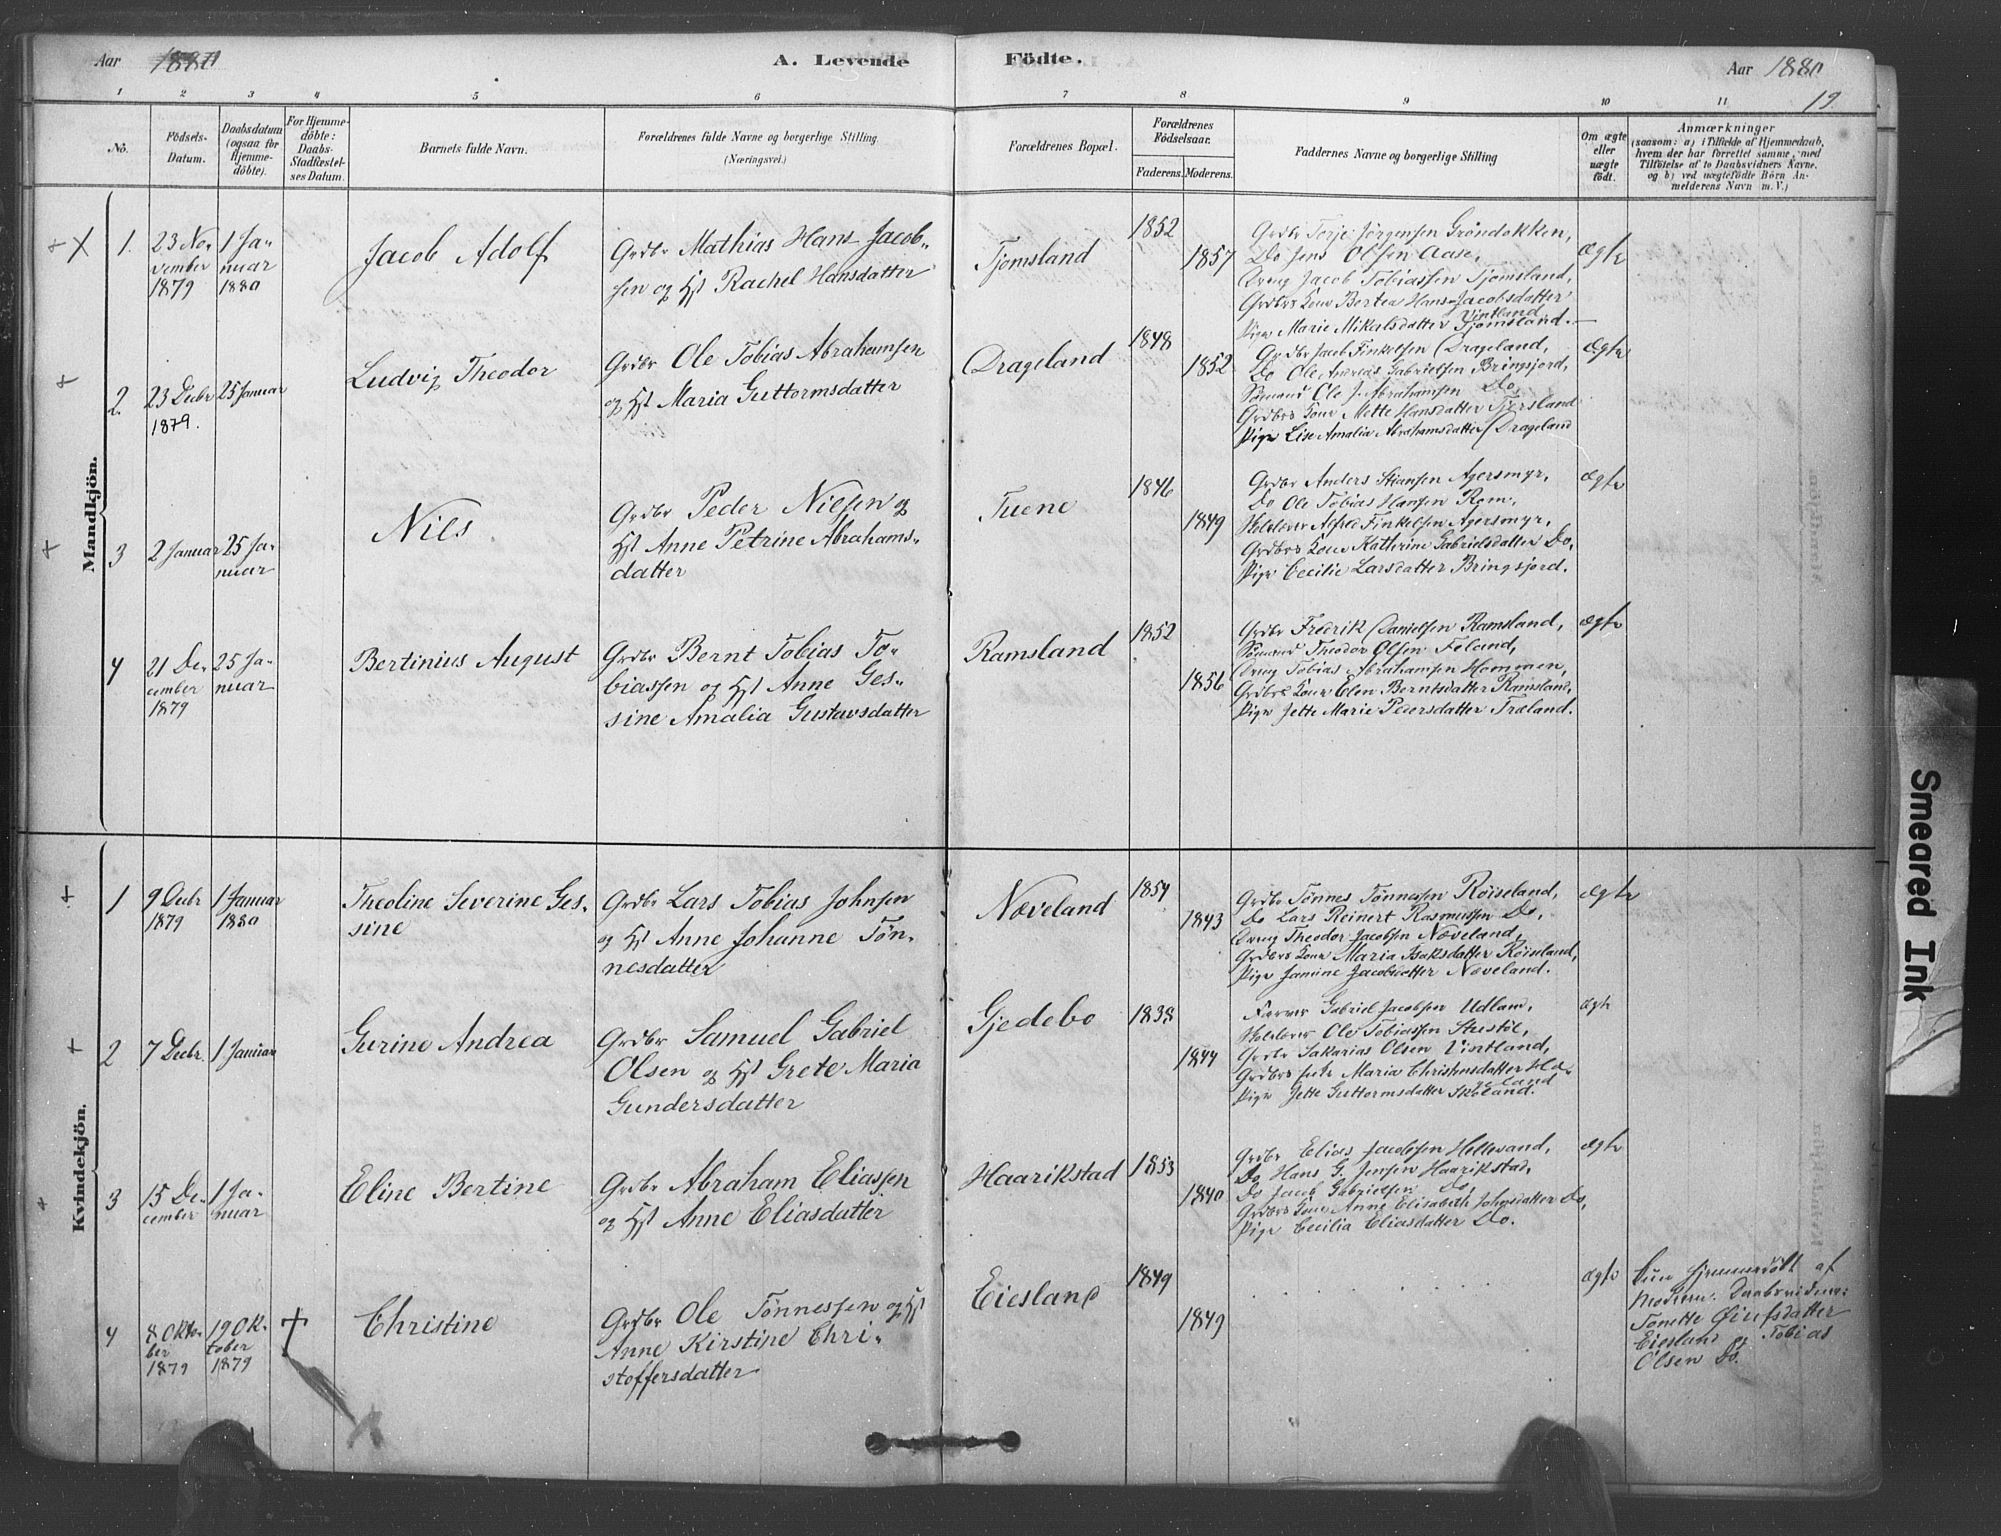 Aar 1880
A. Levende Födte.
Aar 1880
1 2 3 4 5 6 7 8 9 10 11
19.
No.
Födsels-Datum.
Daabsdatum (ogsaa for Hjemmedöbte).
For Hjemmedöbte: Daabs-Stadfæstelses Datum.
Barnets fulde Navn.
Forældrenes fulde Navne og borgerlige Stilling (Næringsvei.)
Forældrenes Bopæl.
Forældrenes Födselsaar.
Faderens. Moderens.
Faddernes Navne og borgerlige Stilling
Om ægte eller uægte födt.
Anmærkninger
(saasom: a) i Tilfælde af Hjemmedaab,
hvem der har forrettet samme, med
Tilföielse af to Daabsvidners Navne.
og b) ved uægtefödte Börn An-
melderens Navn m. V.)
Mandkjön.
1.
23 No-
vember
1879
1 Ja-
nuar
1880
Jacob Adolf
Grdbr Mathias Hans Jacob-
sen og Hst Rachel Hansdatter
Tjomsland
1852
1857
Grdbr Terje Jørgensen Grøndokken,
Do Jens Olsen Aase,
Dreng Jacob Tobiassen Tjomsland,
Grdbrs Kone Bertea Hans Jacobsdatter
Vintland
Pige Marie Mikalsdatter Tjomsland.
ægte
2.
23 Decbr
1879.
25 Januar
Ludvig Theodor
Grdbr Ole Tobias Abrahamsen
og Hst Maria Guttormsdatter
Drageland
1848
1852
Grdbr Jacob Finkelsen Drageland,
Do Ole Andreas Gabrielsen Bringsjord,
Sømand Ole J. Abrahamsen Do,
Grdbrs Kone Mette Hansdatter
Pige Lise Amalia Abrahamsdatter Drageland
ægte
3
2 Januar
25 Ja-
nuar
Nils
Grdbr Peder Nielsen og
Hst Anne Petrine Abrahams-
datter
Tuene
1846
1849
Grdbr Anders Stiansen Agersmyr,
Do Ole Tobias Hansen Rom,
Alfred Finkelsen Agersmyr,
Grdbrs Kone Kathrine Gabrielsdatter Do,
Pige Cecilie Larsdatter Bringsjord.
ægte
4
21 De-
cember
1879
25 Ja-
nuar
Bertinius August
Grdbr Bernt Tobias To-
biassen og Hst Anne Ges-
sine Amalia Gustavsdatter
Ramsland
1852
1856
Grdbr Fredrik Danielsen Ramsland,
Sømand Theodor Olsen Føland,
Dreng Tobias Abrahamsen Hommen,
Grdbrs Kone Elen Berntsdatter Ramsland,
Pige Jette Marie Pedersdatter Træland.
ægte
Kvindekjön.
1
9 Decbr
1879
1 Januar
1880
Theoline Severine Ges-
sine
Grdbr Lars Tobias Johnsen
og Hst Anne Johanne Tøn-
nesdatter
Næveland
1854
1843
Grdbr Tønnes Tønnessen Røiseland,
Do Lars Reinert Rasmussen Do,
Dreng Theodor Jacobsen Næveland,
Grdbrs Kone Maria Isaksdatter Røiseland,
Pige Jamine Jacobsdatter Næveland.
ægte
2
7 Decbr.
1 Januar
Gurine Andrea
Grdbr Samuel Gabriel
Olsen og Hst Grete Maria
Gundersdatter
Gjedebo
1838
1844
Farver Gabriel Jacobsen Udland,
Ole Tobiassen
Grdbr Sakarias Olsen Vintland,
Maria Christensdatter
Pige Jette Guttormsdatter Skoland.
ægte
3
15 De-
cember
1 Ja-
nuar
Eline Bertine
Grdbr Abraham Eliassen
og Hst Anne Eliasdatter
Haarikstad
1853
1840
Grdbr Elias Jacobsen Hellevand,
Do Hans G. Jensen Haarikstad,
Do Jacob Gabrielsen Do,
Grdbrs Kone Anne Elisabeth Johnsdatter Do,
Pige Cecilia Eliasdatter Do.
ægte
4
8 Okto-
ber
1879
19 Ok-
tober
1879
Christine
Grdbr Ole Tønnessen og Hst
Anne Kirstine Chri-
stoffersdatter
Eiesland
1849
1849
ægte
hjemmedøbt af
Moderen. Daabsvidner:
Tonette Øiufsdatter
Eiesland og Tobias
Olsen Do.
Smeared Ink